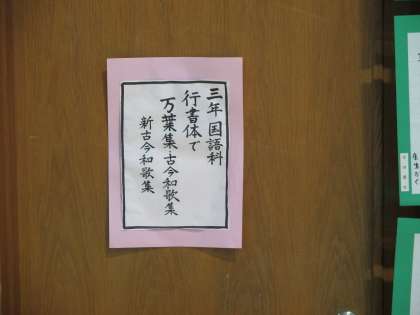 三年国語科
行書体で
万葉集・古今和歌集
新古今和歌集